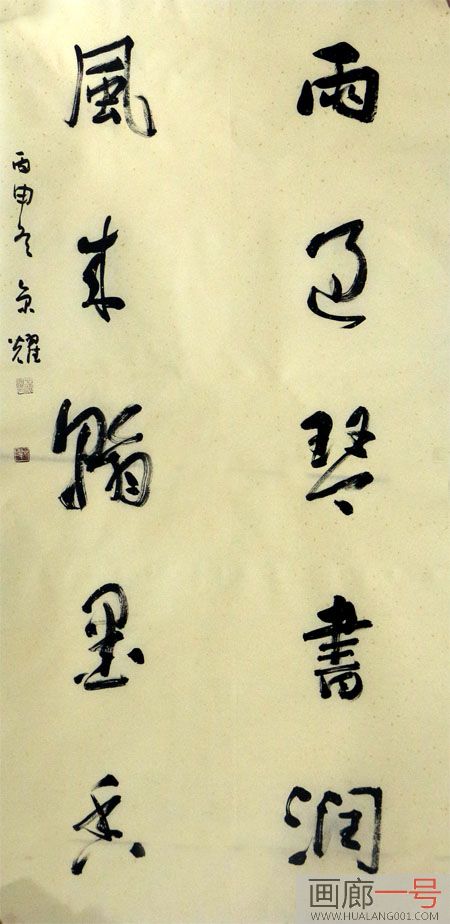 雨過琴書潤
風來翰墨香
丙申冬 京耀
画廊一号
WWW.HUALANG001.COM